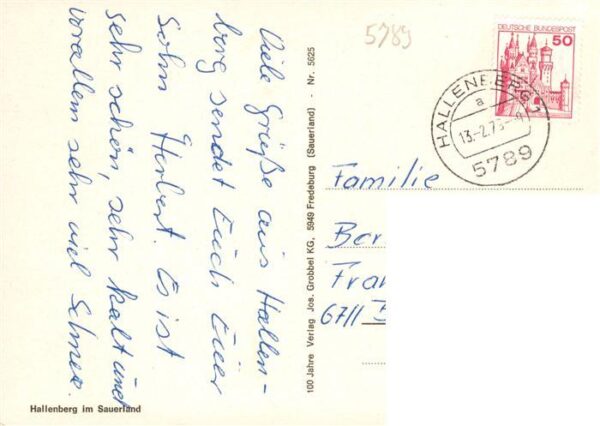 Viele Grüße aus Hallen-
berg sendet Euch Euer
Sohn Herbert. Es ist
sehr schön, sehr kalt und
vorallem sehr viel Schnee.
Hallenberg im Sauerland
100 Jahre Verlag Jos. Grobbel KG, 5949 Fredeburg (Sauerland) - Nr. 5625
5789
DEUTSCHE BUNDESPOST
50
HALLENBERG 1
a
5789
Familie
Ber
Fran
6711